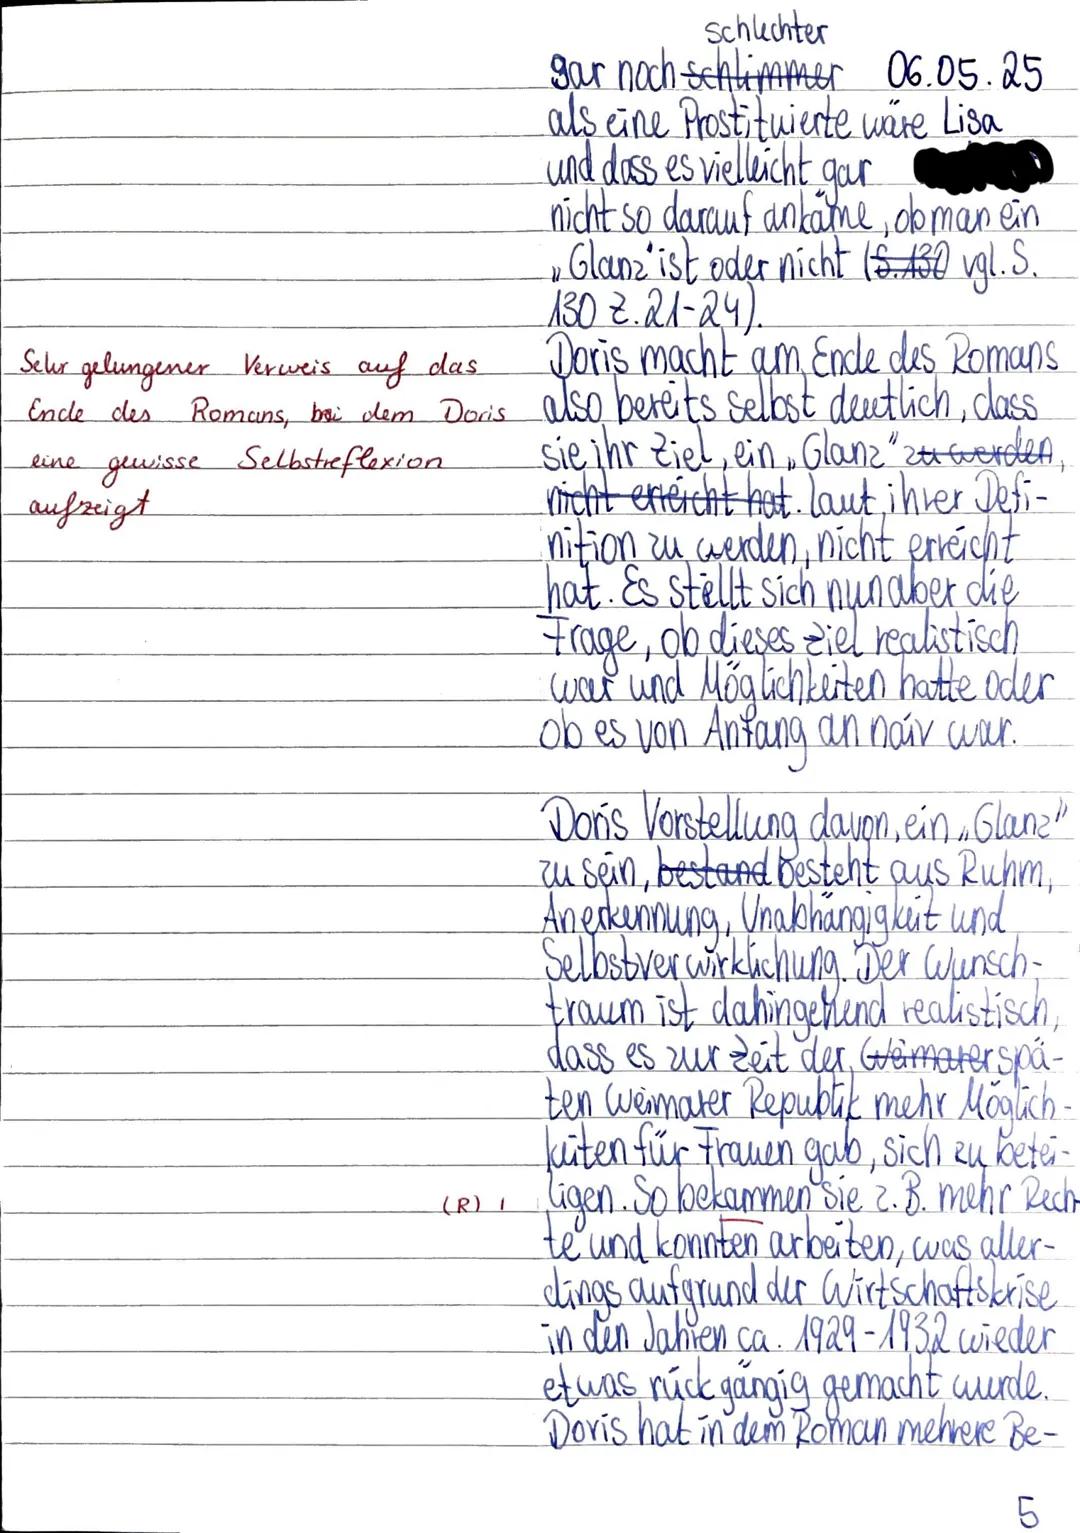 schlechter
gar noch schlimmer 06.05.25
als eine Prostituierte wäre Lisa
und dass es vielleicht gar
nicht so darauf ankäme, ob man ein
„Glanz" ist oder nicht (S. 130 vgl. S.
130 Z. 21-24).
Doris macht am Ende des Romans
also bereits selbst deutlich, dass
sie ihr Ziel, ein „Glanz" zu werden,
nicht erreicht hat. laut ihrer Defi-
nition zu werden, nicht erreicht
hat. Es stellt sich nun aber die
Frage, ob dieses Ziel realistisch
war und Möglichkeiten hatte oder
ob es von Anfang an naiv war.
Sehr gelungener Verweis auf das
Ende des Romans, bei dem Doris
eine gewisse Selbstreflexion
aufzeigt
Doris Vorstellung davon, ein „Glanz"
zu sein, bestand besteht aus Ruhm,
Anerkennung, Unabhängigkeit und
Selbstverwirklichung. Der Wunsch-
traum ist dahingehend realistisch,
dass es zur Zeit der Weimarer spä-
ten Weimarer Republik mehr Möglich-
keiten für Frauen gab, sich zu betei-
ligen. So bekammen sie z.B. mehr Rech-
(R) I
te und konnten arbeiten, was aller-
dings aufgrund der Wirtschaftskrise
in den Jahren ca. 1929-1932 wieder
etwas rückgängig gemacht wurde.
Doris hat in dem Roman mehrere Be-
5